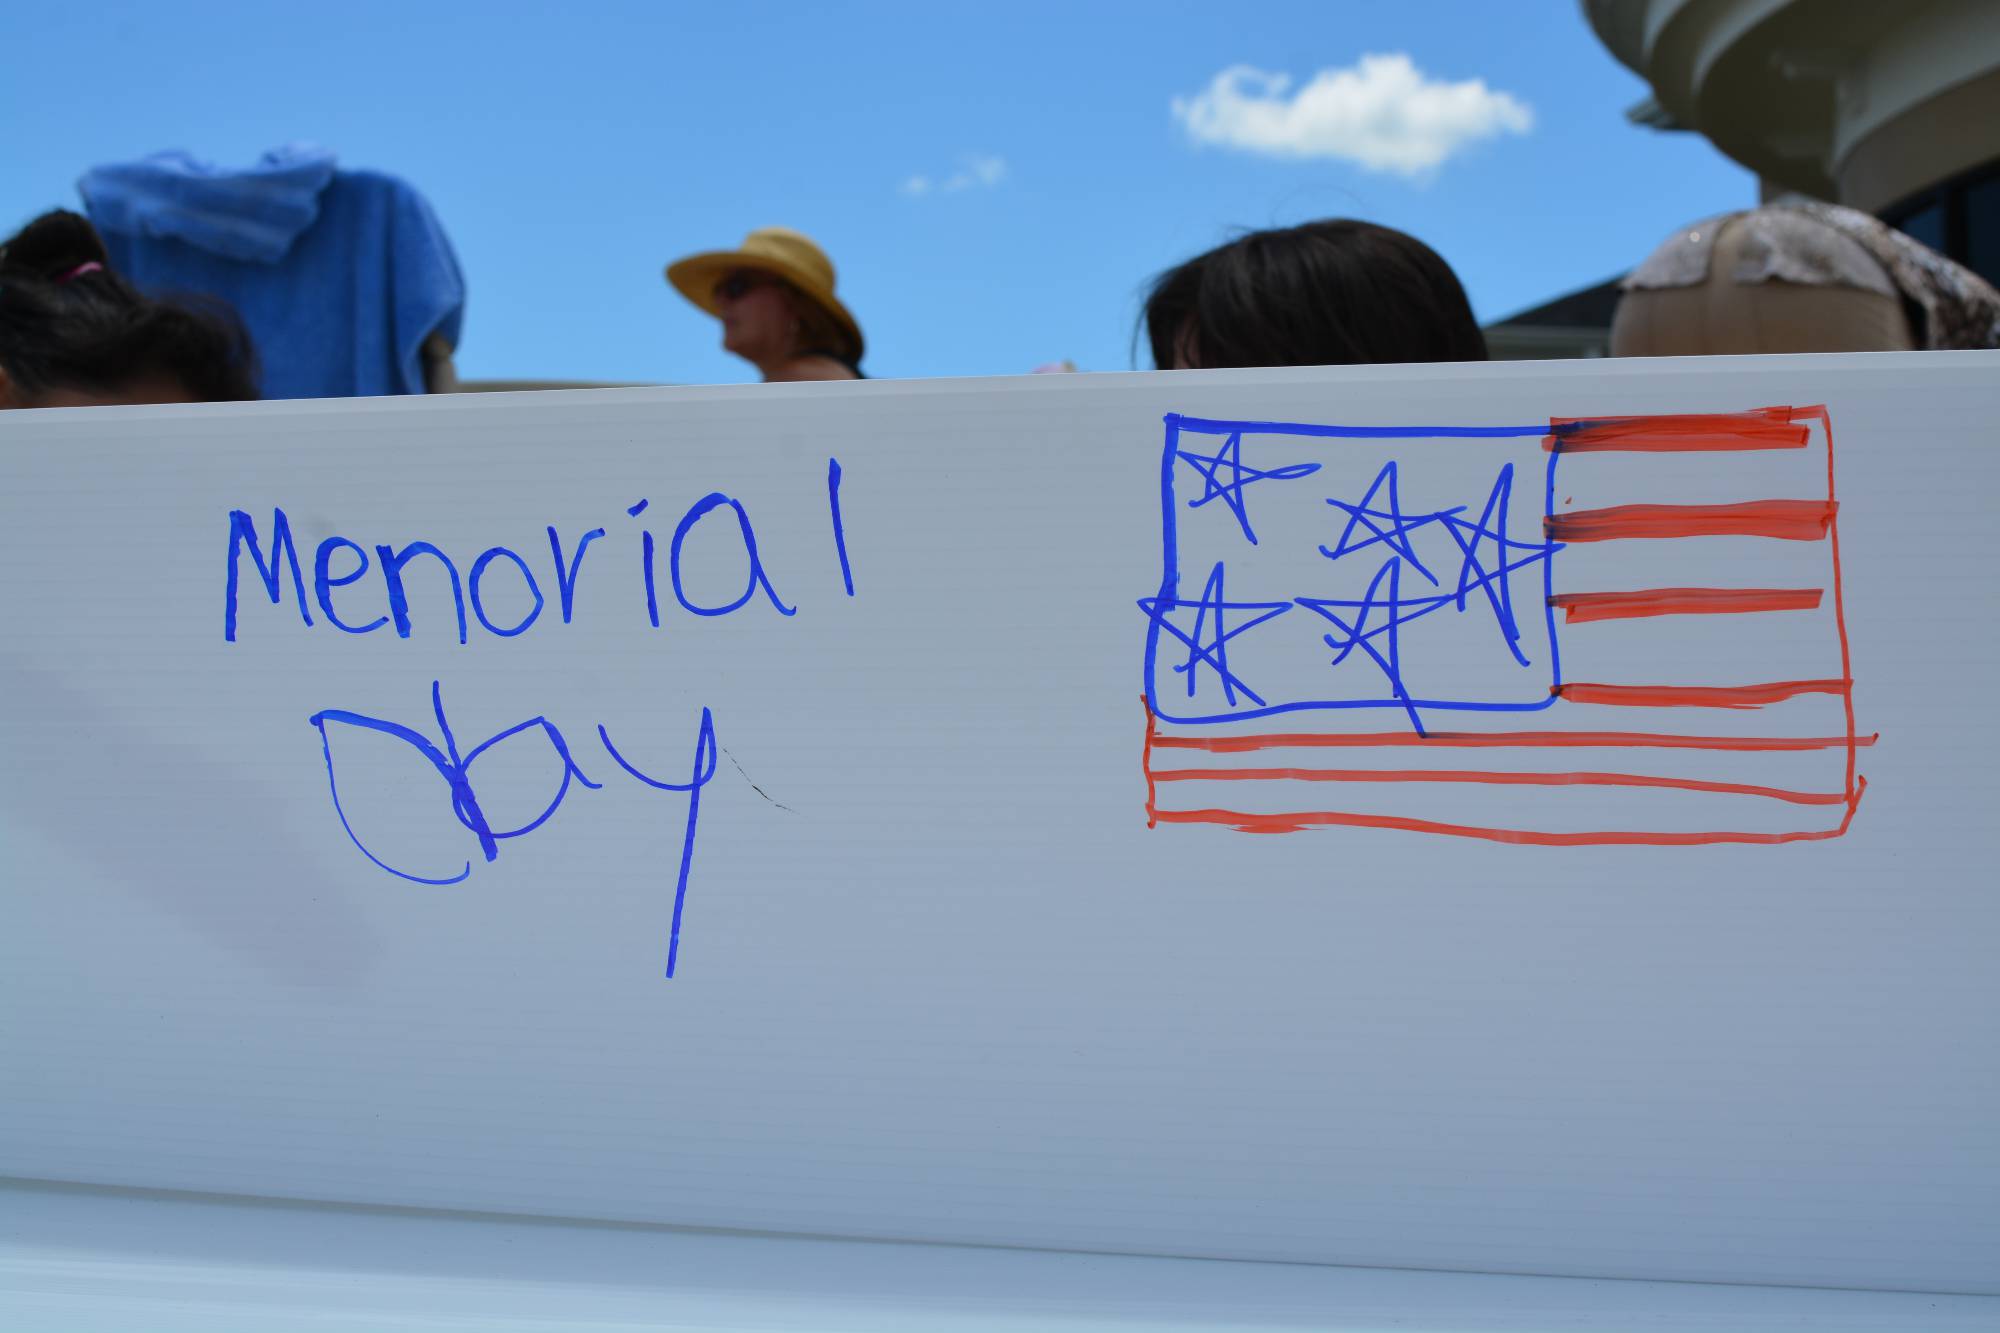 Menorial
Day